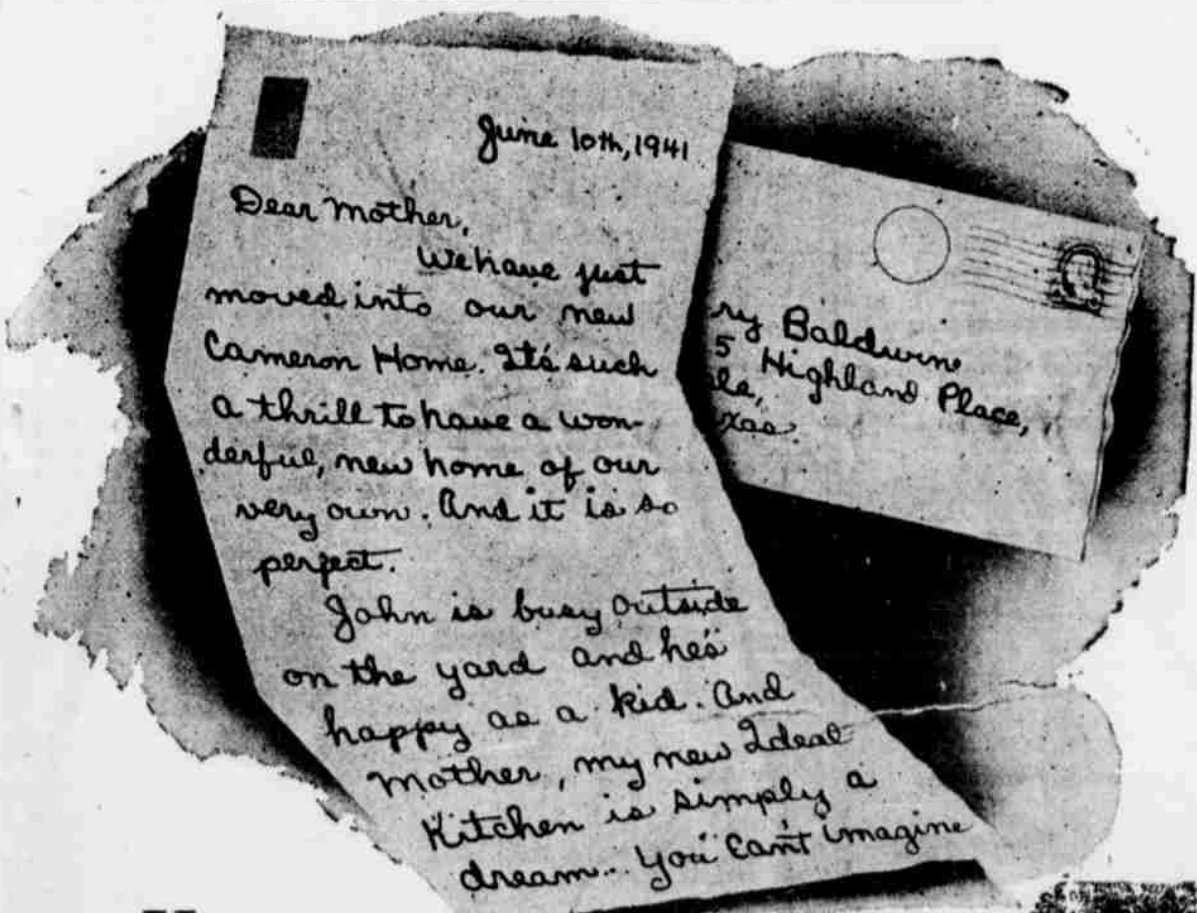 June 10th, 1941
Dear Mother,
We have just
moved into our new
Cameron Home. It's such
a thrill to have a won-
derful, new home of our
very own. And it is so
perfect.
John is busy outside
on the yard and he's
happy as a kid. And
Mother, my new Ideal
Kitchen is simply a
dream.. You can't imagine
ry Baldwine
5 Highland Place,
le,
xas.